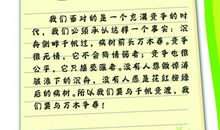 我们面对的是一个充满竞争的时
代，我们必须承认这样一个事实：沉
舟侧畔千帆过，病树前头万木春。竞争
很无情，它不会同情弱者；竞争也很
公平，它只接受强者。没有人愿做惊涛
骇浪下的沉舟，没有人愿是花红柳绿
后的病树。所以我们要与千帆竞渡，我
们要与万木争春！